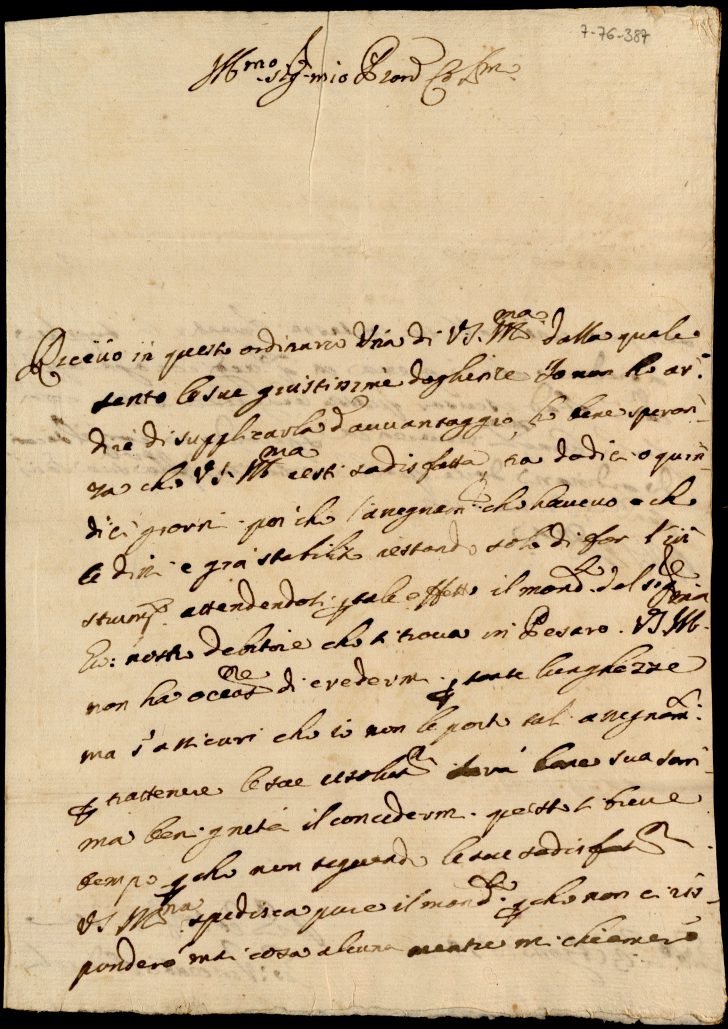 7-76-387
Ill.mo Sig. mio Pron Col.mo
Riceuo in questo ordinario Una di VS. Ill.ma dalla quale
sento le sue giustissime doglienze Io non ho ar:
dire di supplicarla d'auuantaggio, ho bene speran:
za che VS. Ill.ma resti sadisfatta fra dodici o quin
dici giorni poi che l'assegnam.to che haueuo e che
le dissi e già stabilito restando solo di far l'in
strum.to attendendosi per tale effetto il mand. del
nostro debitore che si troua in Pesaro. VS. Ill.ma
non ha occas.ne di credermi per tante lunghezze
ma s'assicuri che io non le porto tal assegnam.:
per trattenere le sue resolut.ni sua soli:
ma benignità il concedermi questo breue
tempo perche non seguendo le sue sadisfat.
VS. Ill.ma spedisca pure il mand. perche non ci ris:
ponderò mai cosa alcuna mentre mi chiamerò